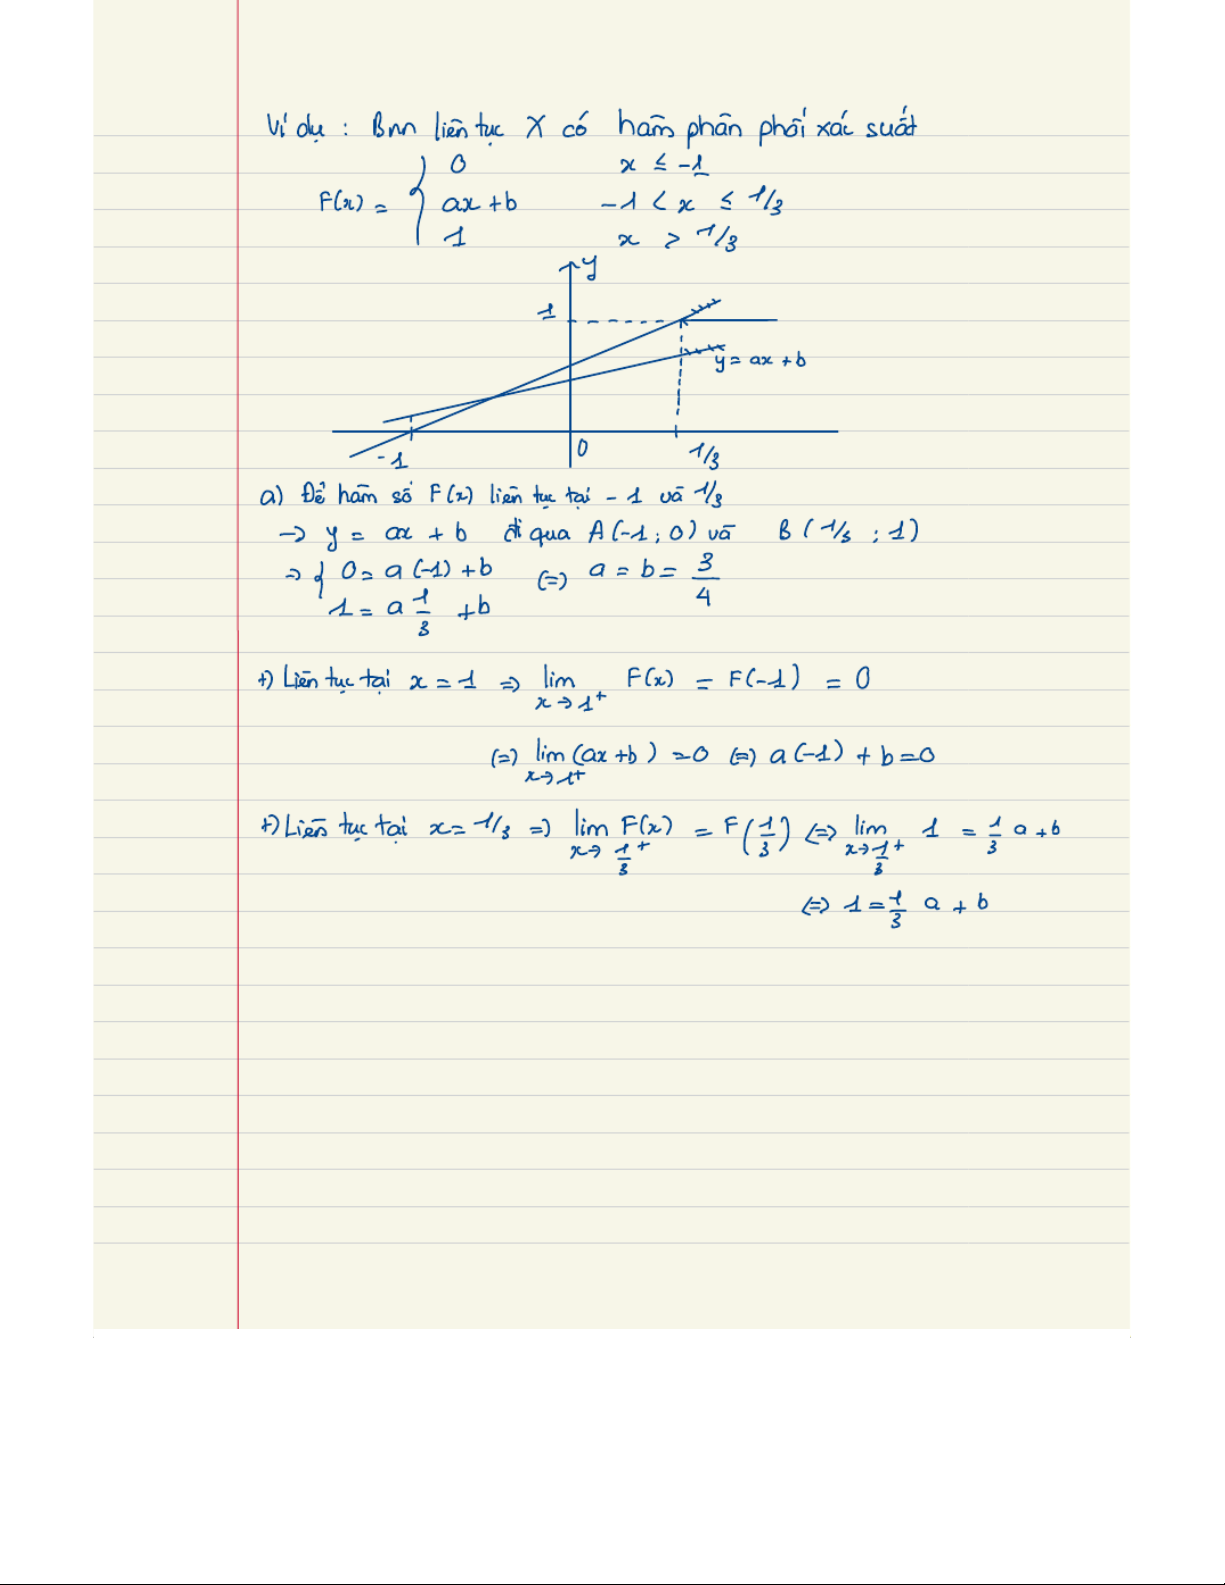 Ví dụ : Bnn liên tục X có hàm phân phối xác suất
F(x) = { 0 x ≤ -1
ax + b -1 < x ≤ 1/3
1 x > 1/3
y
1
y = ax + b
-1 0 1/3
a) Để hàm số F(x) liên tục tại - 1 và 1/3
→ y = ax + b đi qua A(-1; 0) và B(1/3 ; 1)
⇒ { 0 = a(-1) + b (=) a = b = 3/4
1 = a 1/3 + b
+) Liên tục tại x = 1 ⇒ lim x→1⁺ F(x) = F(-1) = 0
(=) lim x→1⁺ (ax + b) = 0 (=) a(-1) + b = 0
+) Liên tục tại x = 1/3 =) lim x→1/3⁺ F(x) = F(1/3) (=) lim x→1/3⁺ 1 = 1/3 a + b
(=) 1 = 1/3 a + b